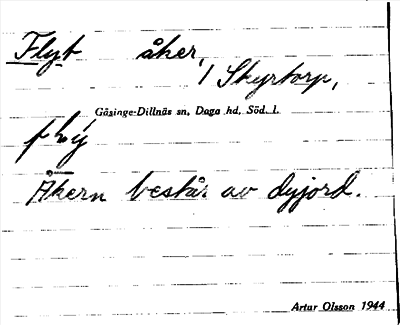 Flyt åker,
/ Skyrtorp,
Gåsinge-Dillnäs sn, Daga hd, Söd. l.
Åkern består av dyjord.
Artur Olsson 1944